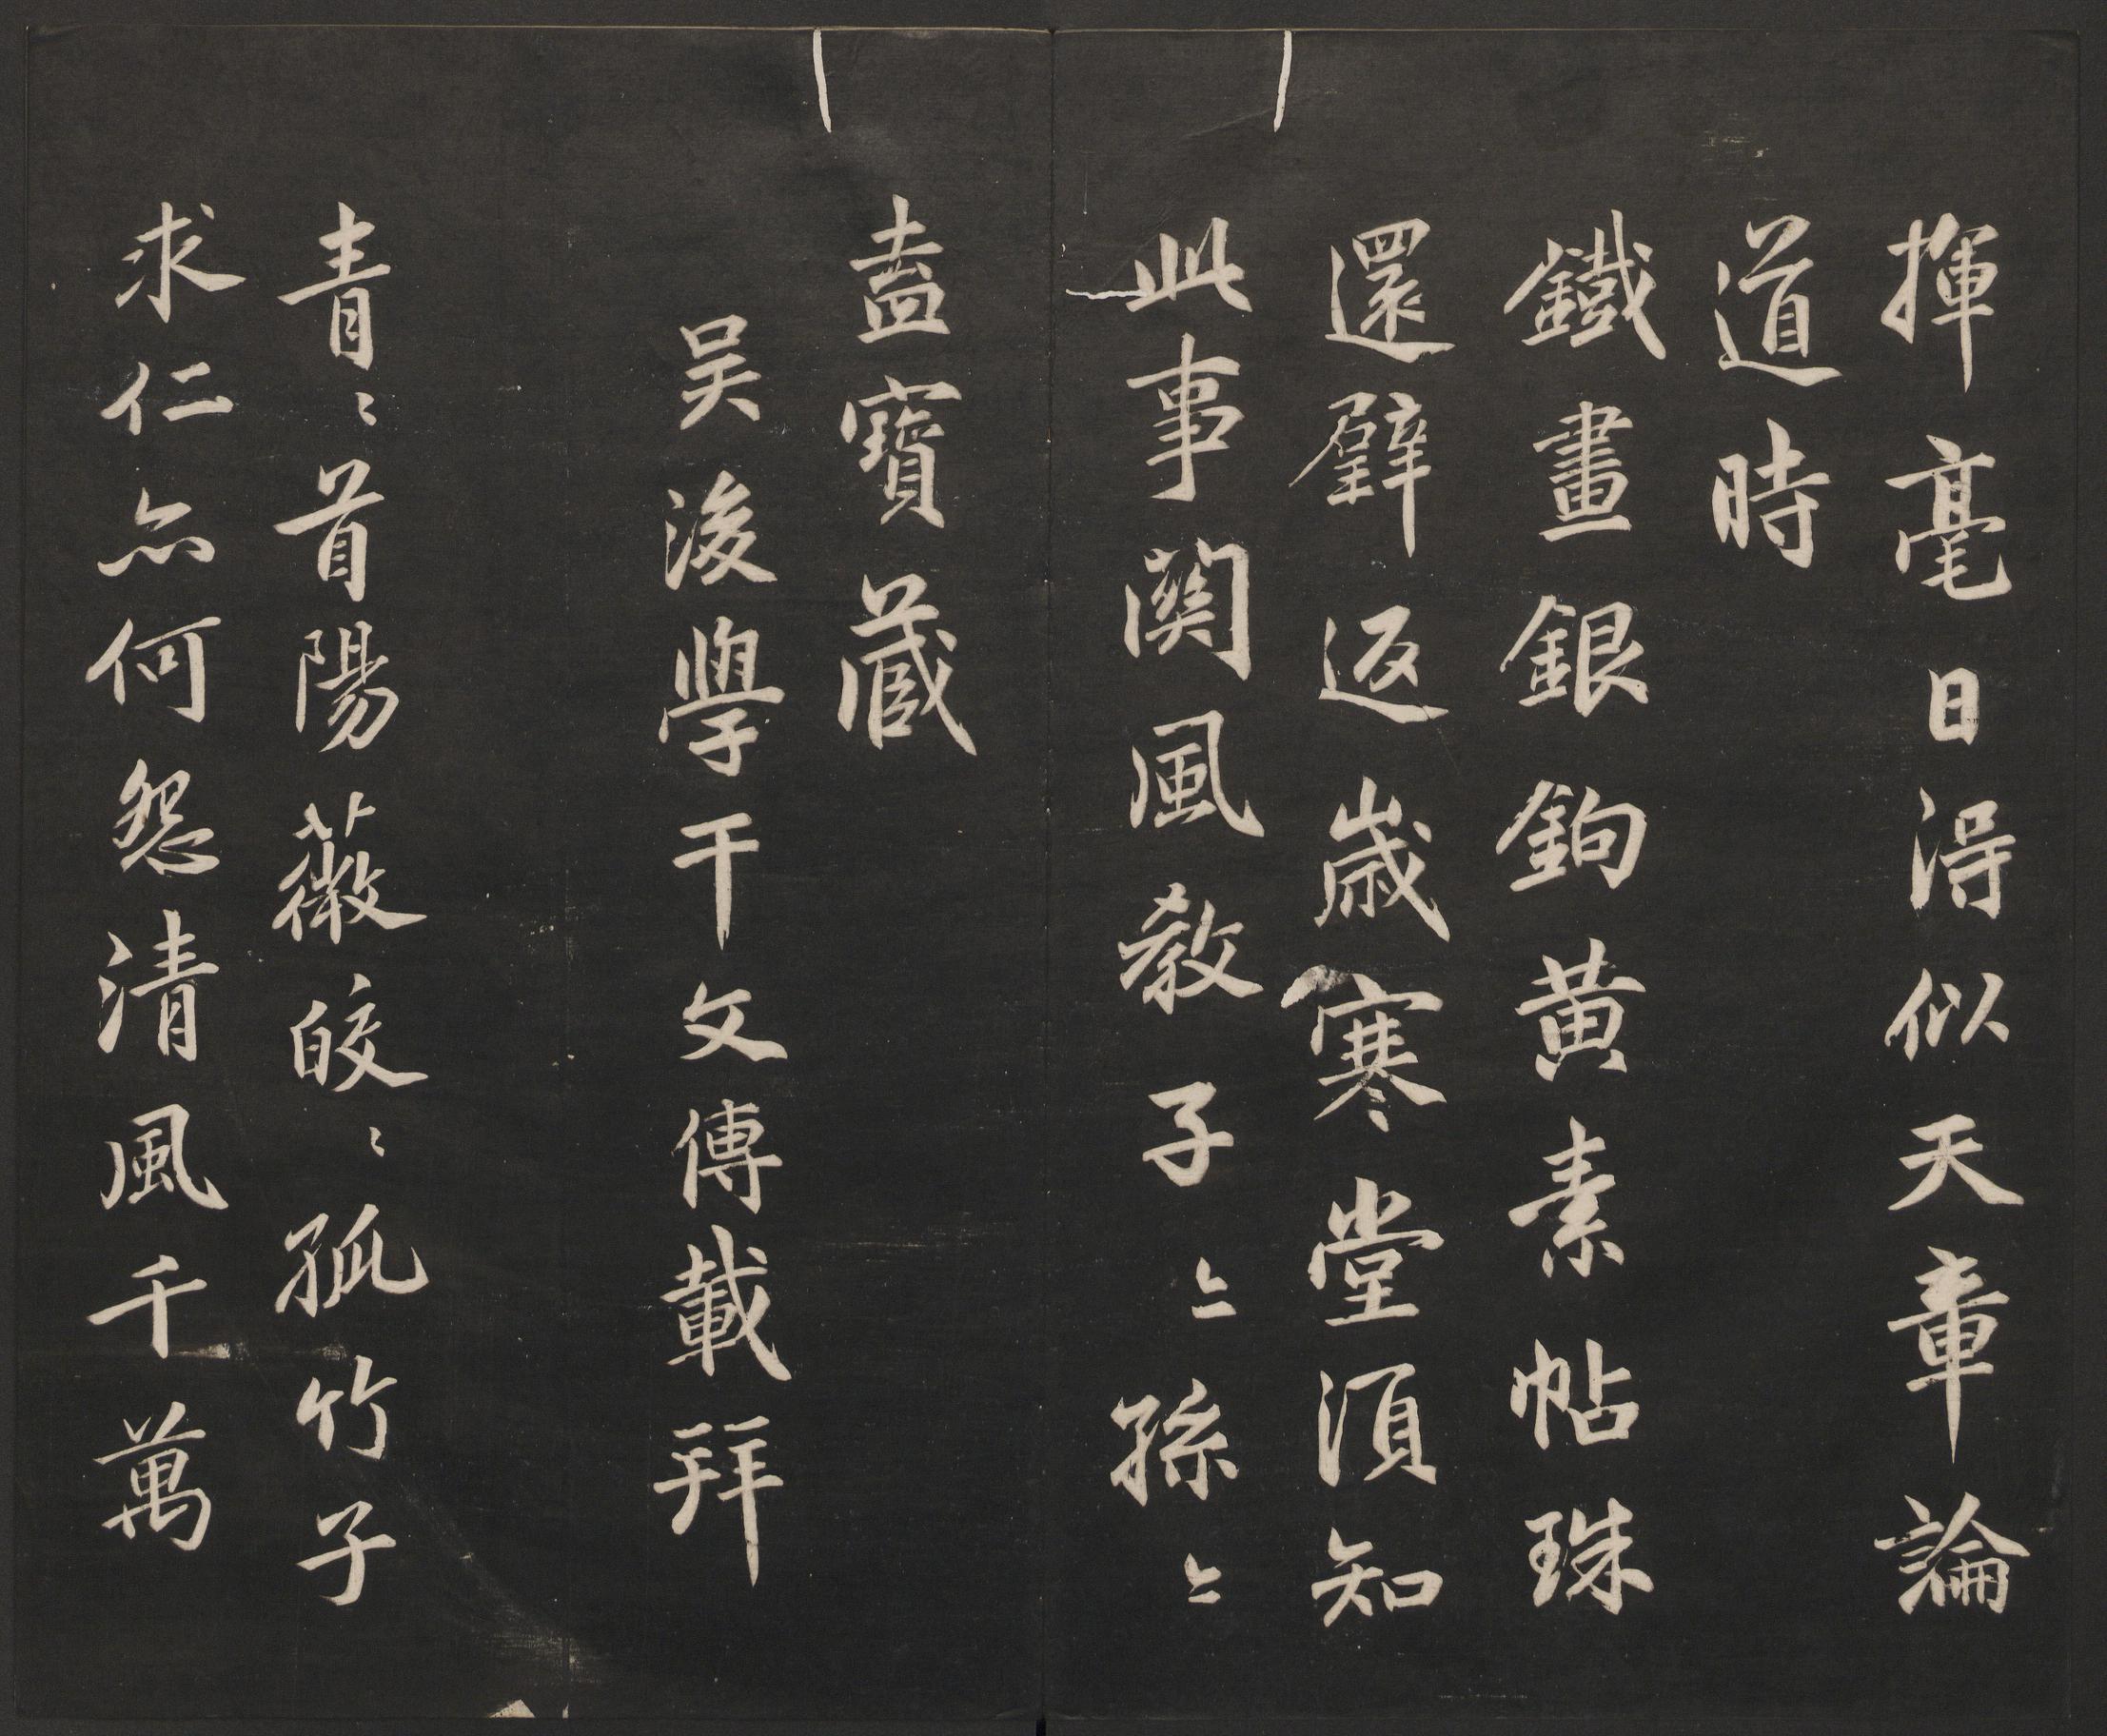 揮毫日得似天章論
道時
鐵畫銀鉤黃素帖珠
還璧返歲寒堂須知
此事關風教子〻孫〻
盍寶藏
吴後學干文傳載拜
青〻首陽薇皎〻孤竹子
求仁亦何怨清風千萬